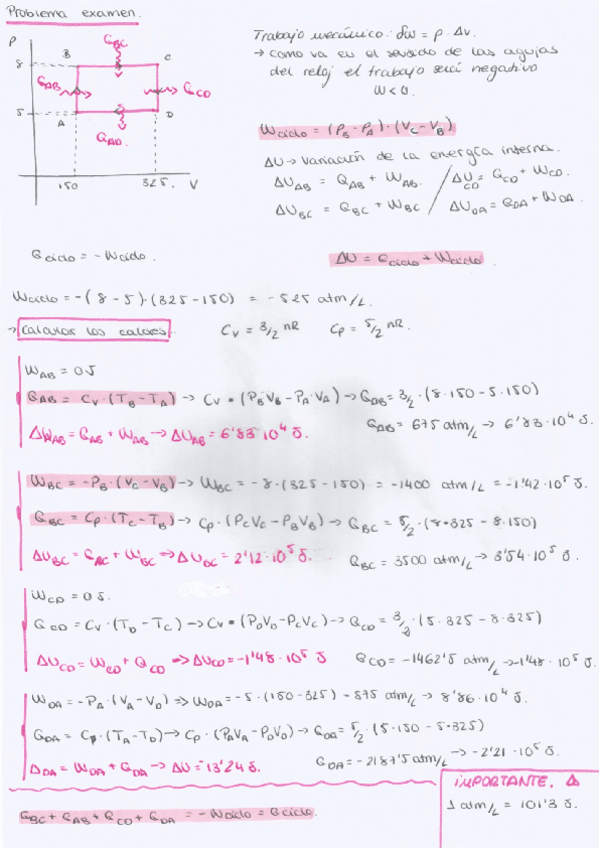 Problema examen.
P
8
5
B
C
A
D
Q_BC
Q_AB
Q_CD
Q_AD
150
325.
V
Trabajo mecánico: δw = p · Δv.
→ como va en el sentido de las agujas
del reloj el trabajo será negativo
W < 0.
Wciclo = (P_B - P_A) · (V_C - V_B)
ΔU → Variación de la energía interna.
ΔU_AB = Q_AB + W_AB. / ΔU_CD = Q_CD + W_CD.
ΔU_BC = Q_BC + W_BC / ΔU_DA = Q_DA + W_DA.
Qciclo = - Wciclo.
ΔU = Qciclo + Wciclo.
Wciclo = -(8-5)·(325-150) = -525 atm/L.
→ Calcular los calores.
C_V = 3/2 nR
C_P = 5/2 nR.
W_AB = 0 J
Q_AB = C_V · (T_B - T_A) → C_V • (P_B V_B - P_A · V_A) → Q_AB = 3/2 · (8·150 - 5·150)
Q_AB = 675 atm/L → 6'83·10^4 J.
ΔW_AB = Q_AB + W_AB → ΔU_AB = 6'83·10^4 J.
W_BC = -P_B · (V_C - V_B) → W_BC = -8 · (325 - 150) = -1400 atm/L = -1'42·10^5 J.
Q_BC = C_P · (T_C - T_B) → C_P · (P_C V_C - P_B V_B) → Q_BC = 5/2 · (8•325 - 8·150)
ΔU_BC = Q_BC + W_BC ⇒ ΔU_BC = 2'12·10^5 J.
Q_BC = 3500 atm/L → 3'54·10^5 J.
W_CD = 0 J.
Q_CD = C_V · (T_D - T_C) → C_V • (P_D V_D - P_C V_C) → Q_CD = 3/2 · (5·325 - 8·325)
ΔU_CD = W_CD + Q_CD ⇒ ΔU_CD = -1'48·10^5 J
Q_CD = -1462'5 atm/L → -1'48·10^5 J.
W_DA = -P_A · (V_A - V_D) ⇒ W_DA = -5 · (150 - 325) - 875 atm/L → 8'86·10^4 J.
Q_DA = C_P · (T_A - T_D) → C_P · (P_A V_A - P_D V_D) → Q_DA = 5/2 · (5·150 - 5·325)
Q_DA = -2187'5 atm/L → -2'21·10^5 J.
Δ_DA = W_DA + Q_DA ⇒ ΔU = -13'24 J.
Q_BC + Q_AB + Q_CD + Q_DA = - Wciclo = Qciclo.
IMPORTANTE. Δ
1 atm/L = 101'3 J.